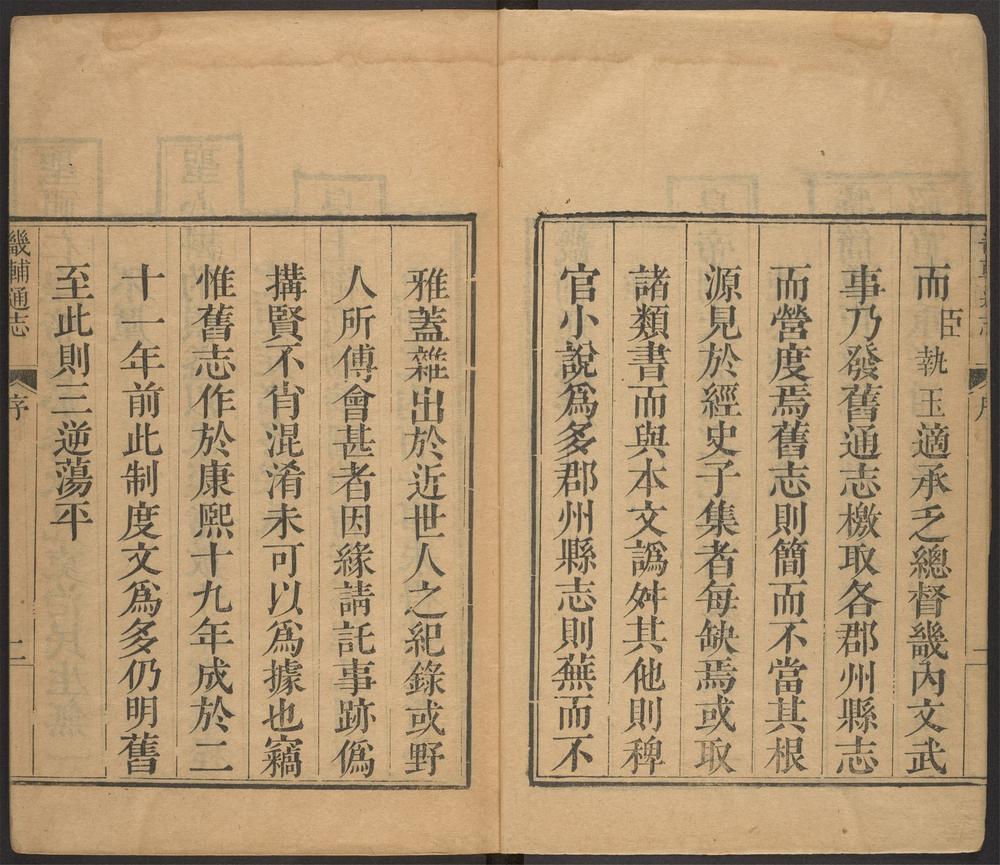 而臣執玉適承乏總督畿內文武
事乃發舊通志檄取各郡州縣志
而營度焉舊志則簡而不當其根
源見於經史子集者每缺焉或取
諸類書而與本文譌舛其他則稗
官小說爲多郡州縣志則蕪而不
雅蓋雜出於近世人之紀錄或野
人所傅會甚者因緣請託事跡僞
搆賢不肖混淆未可以爲據也竊
惟舊志作於康熙十九年成於二
十一年前此制度文爲多仍明舊
至此則三逆蕩平
畿輔通志
序
二